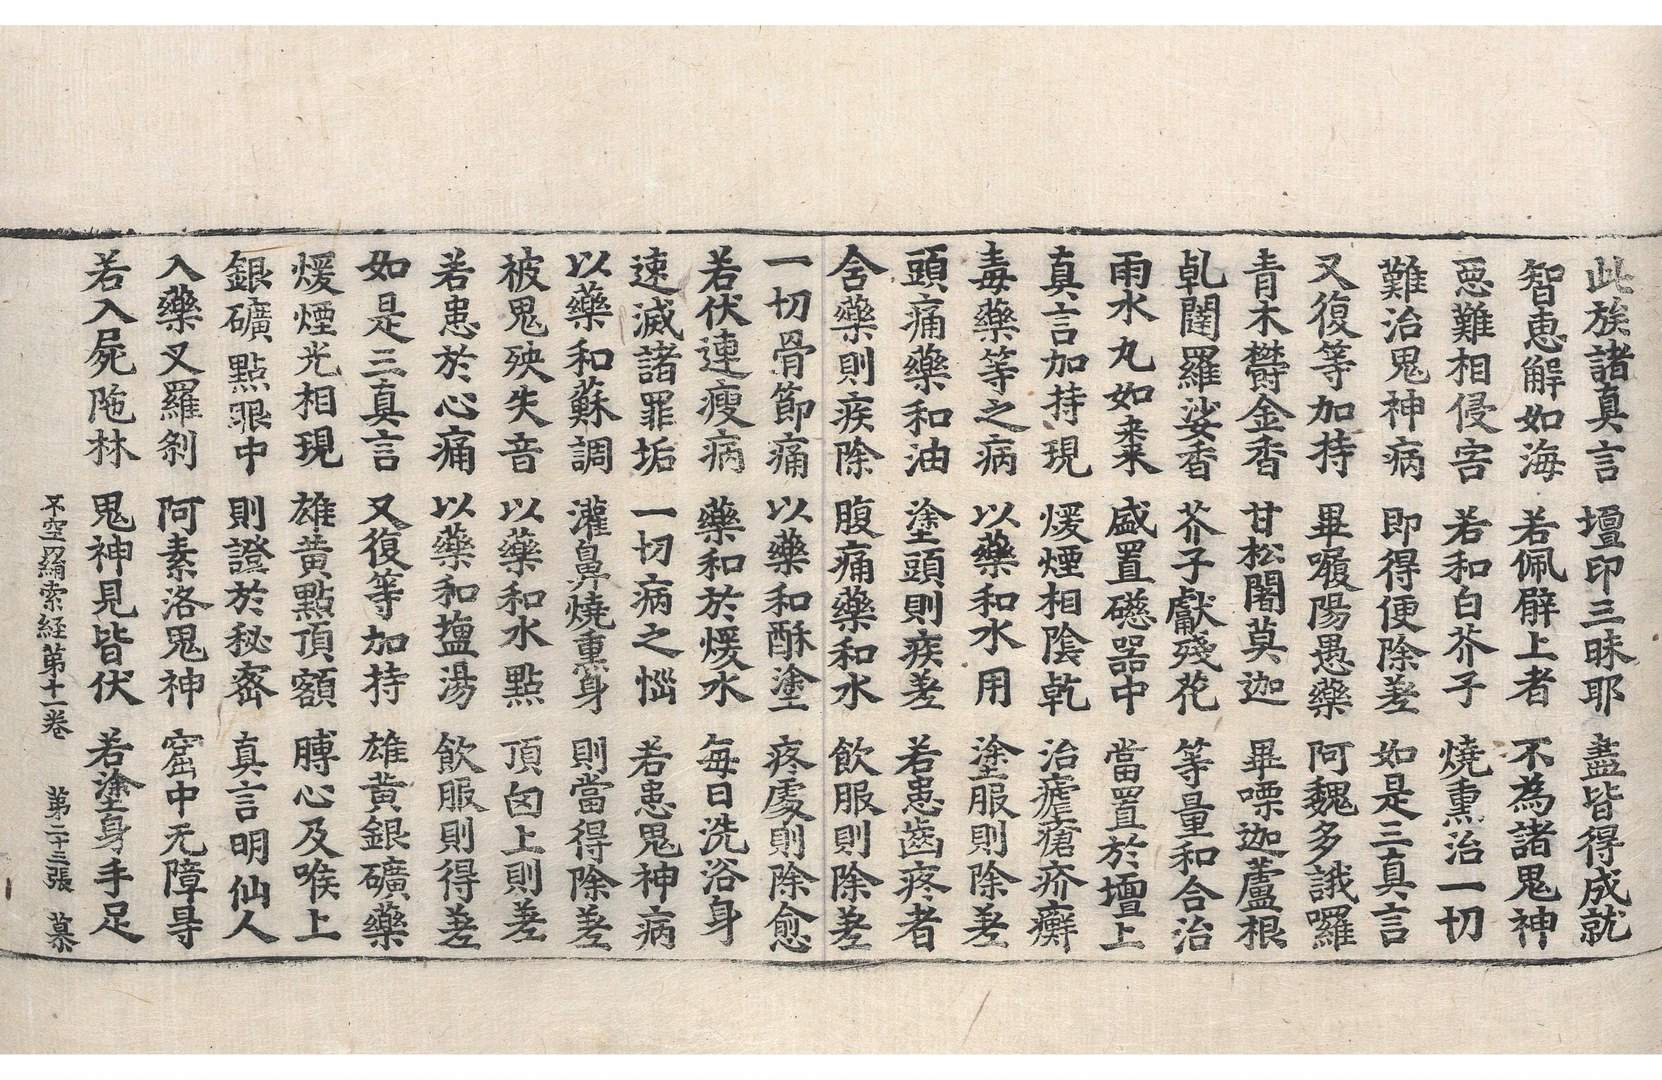 此族諸真言　壇印三昧耶　盡皆得成就
智恵解如海　若佩臂上者　不為諸鬼神
惡難相侵害　若和白芥子　燒熏治一切
難治鬼神病　即得便除差　如是三真言
又復等加持　畢囇陽愚藥　阿魏多誐囉
青木欝金香　甘松闍莫迦　畢㗚迦蘆根
乹闥羅娑香　芥子獻殘花　等量和合治
雨水丸如棗　盛置礠器中　當置於壇上
真言加持現　煖煙相陰乹　治瘧瘡疥癬
毒藥等之病　以藥和水用　塗服則除差
頭痛藥和油　塗頭則疾差　若患齒疼者
含藥則疾除　腹痛藥和水　飲服則除差
一切骨節痛　以藥和酥塗　疼處則除愈
若伏連瘦病　藥和於煖水　每日洗浴身
速滅諸罪垢　一切病之惱　若患鬼神病
以藥和蘇調　灌鼻燒熏身　則當得除差
被鬼殃失音　以藥和水點　頂囟上則差
若患於心痛　以藥和塩湯　飲服則得差
如是三真言　又復等加持　雄黄銀礦藥
煖煙光相現　雄黄點頂額　膊心及喉上
銀礦點眼中　則證於秘密　真言明仙人
入藥叉羅剎　阿素洛鬼神　窟中无障㝵
若入屍陁林　鬼神見皆伏　若塗身手足
不空羂索経第十一卷　第二十三張　慕